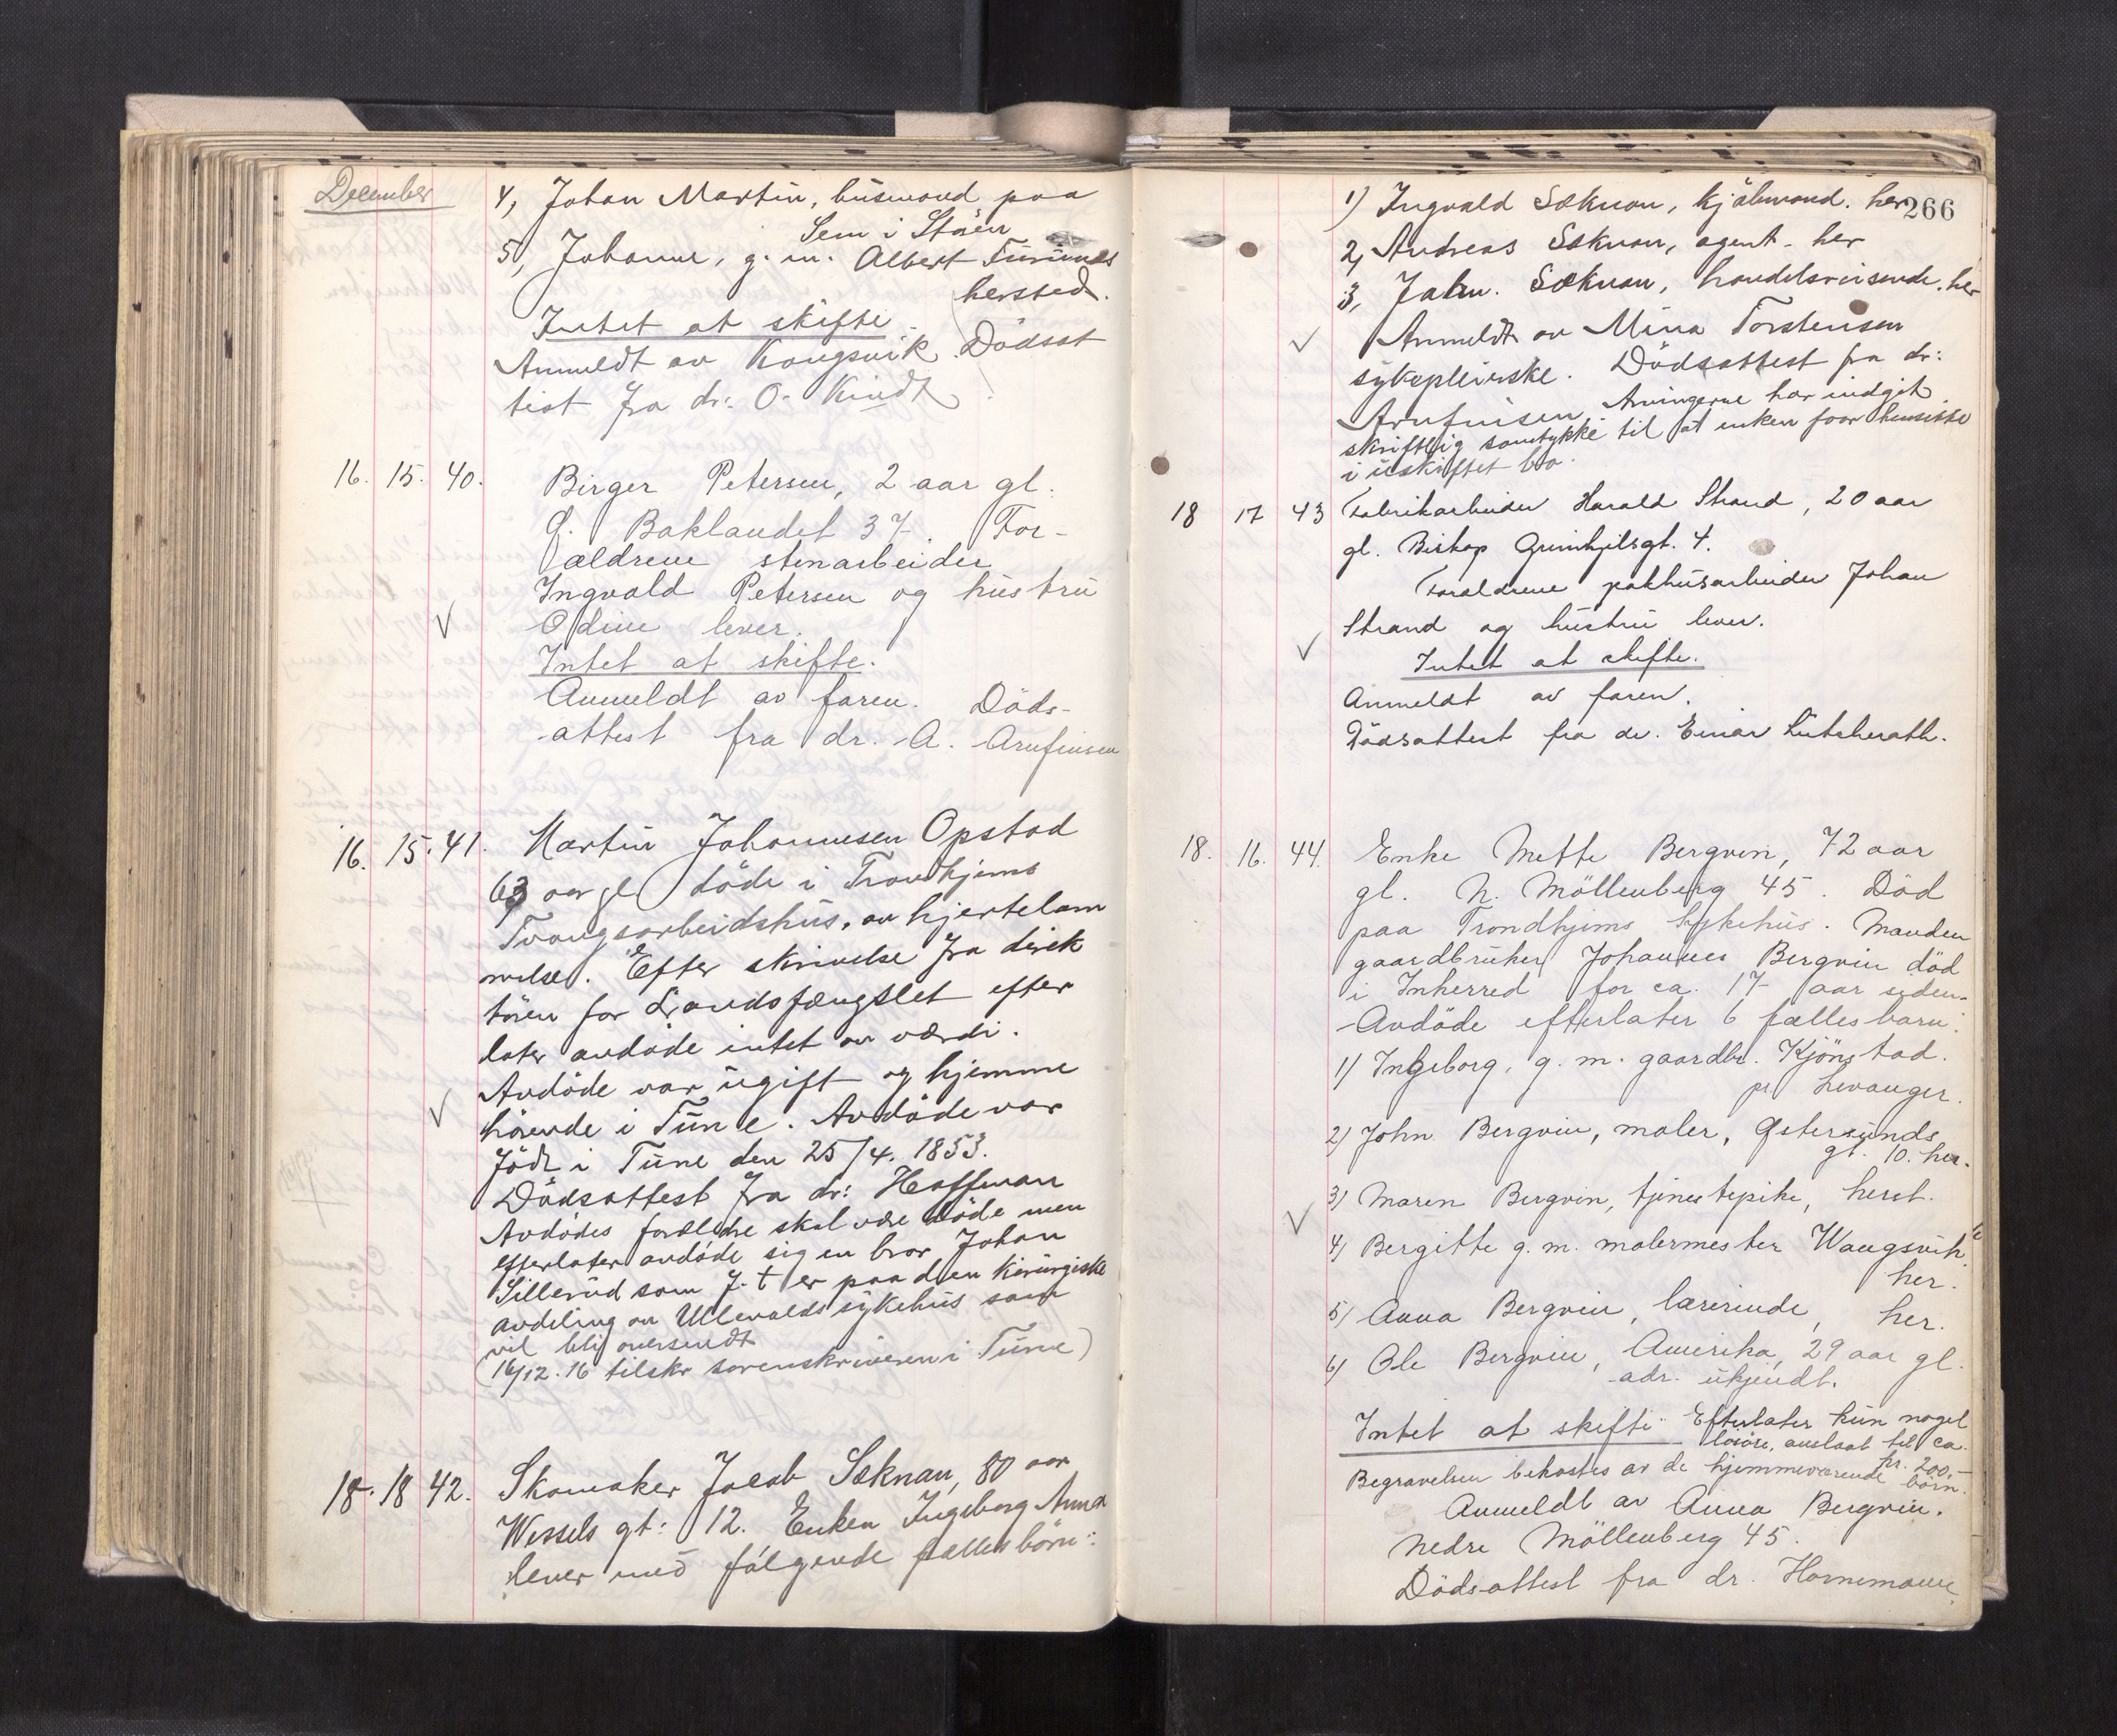 December
4, Johan Martin, husmand paa
Sem i Stören
5, Johanne, g. m. Albert
hersted.
Intet at skifte.
Anmeldt av Kongsvik. Dödsat
test fra dr: O. Kindt
16. 15. 40. Birger Petersen, 2 aar gl.
Ö. Baklandet 37. For-
ældrene stenarbeider
Ingvald Petersen og hustru
Odine lever.
Intet at skifte.
Anmeldt av faren. Döds-
attest fra dr. A. Arnfinsen
16. 15. 41. Martin Johannesen Opstad
63 aar gl döde i Trondhjems
Tvangsarbeidshus, av hjertelam
melse. Efter skrivelse fra direk
tören for Landsfængslet efter
later avdöde intet av værdi.
Avdöde var ugift og hjemme
hörende i Tune. Avdöde var
född i Tune den 25/4. 1853.
Dödsattest fra dr: Hoffman
Avdödes forældre skal være döde men
efterlater avdöde sig en bror Johan
Sillerud som f. t er paa den Kirurgiske
avdeling av Ullevaalds sykehus som
vil bli oversendt
(16/12. 16 tilskr sorenskriveren i Tune)
18. 18 42. Skomaker Jacob Sæknan, 80 aar
Wessels gt: 12. Enken Ingeborg Anna
lever med fölgende fælles börn:
266
1) Ingvald Sæknan, kjöbmand. her
2, Andreas Sæknan, agent. her
3, Sæknan, handelsreisende. her
Anmeldt av Mina Torstensen
sykepleierske. Dödsattest fra dr:
Arnfinsen. Arvingerne har indgit
skriftlig samtykke til at enken faar hensitte
i uskiftet bo.
18 17 43 Fabrikarbeider Harald Strand, 20 aar
gl. Biskop Grimkjelsgt. 4.
Forældrene pakhusarbeider Johan
Strand og hustru lever.
Intet at skifte.
Anmeldt av faren.
Dödsattest fra dr. Einar Lütcherath.
18. 16. 44. Enke Mette Bergvin, 72 aar
gl. N. Möllenberg 45. Död
paa Trondhjems Sykehus. Manden
gaardbruker Johannes Bergvin död
i Inherred for ca. 17 aar siden.
Avdöde efterlater 6 fællesbarn:
1) Ingeborg, g. m. gaardbr. Kjönstad.
pr Levanger.
2) John Bergvin, maler, Østersunds
gt. 10. her.
3) Maren Bergvin, tjenestepike, herst.
4) Bergitte g. m. malermester Wangsvik
her.
5) Anna Bergvin, lærerinde, her.
6) Ole Bergvin, Amerika, 29 aar gl.
adr. ukjendt.
Intet at skifte. Efterlater kun noget
lösöre, anslaat til ca.
kr. 200,-
Begravelsen bekostes av de hjemmeværende börn.
Anmeldt av Anna Bergvin.
Nedre Möllenberg 45.
Dödsattest fra dr. Hornemann.